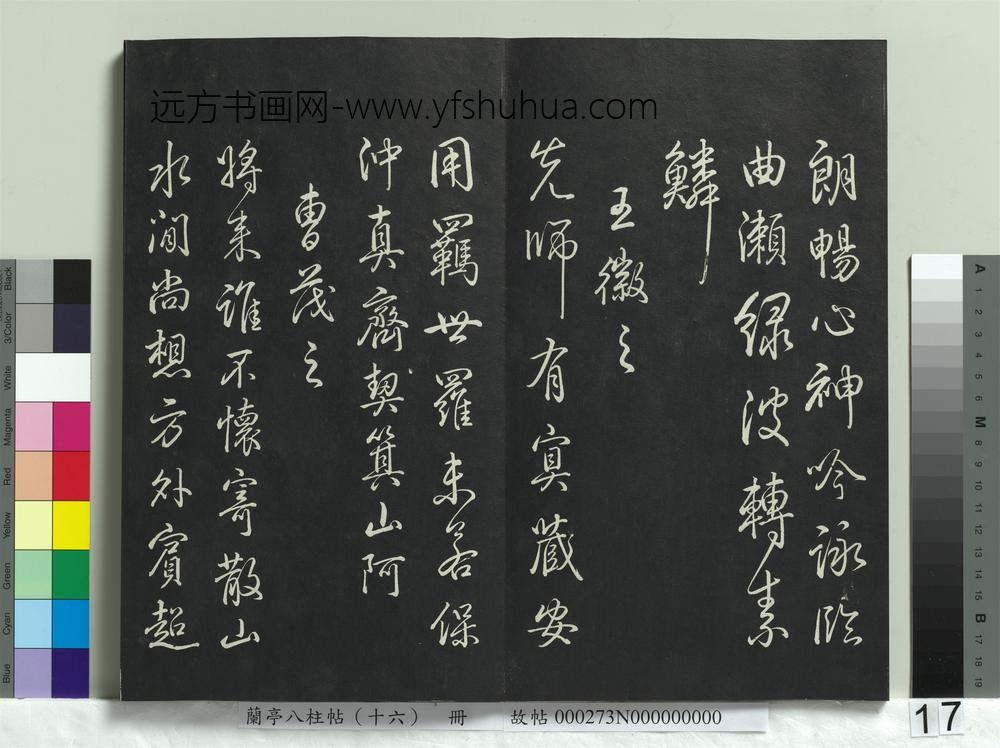 远方书画网-www.yfshuhua.com
朗暢心神吟詠臨
曲瀨綠波轉素
鱗
王徽之
先師有冥藏安
用羈世羅未若保
沖真齊契箕山阿
曹茂之
將來誰不懷寄散山
水澗尚想方外賓超
蘭亭八柱帖（十六） 冊 故帖 000273N000000000
17
Black
3/Color
White
Magenta
Red
Yellow
Green
Cyan
Blue
A
1
2
3
4
5
6
M
8
9
10
11
12
13
14
15
B
17
18
19